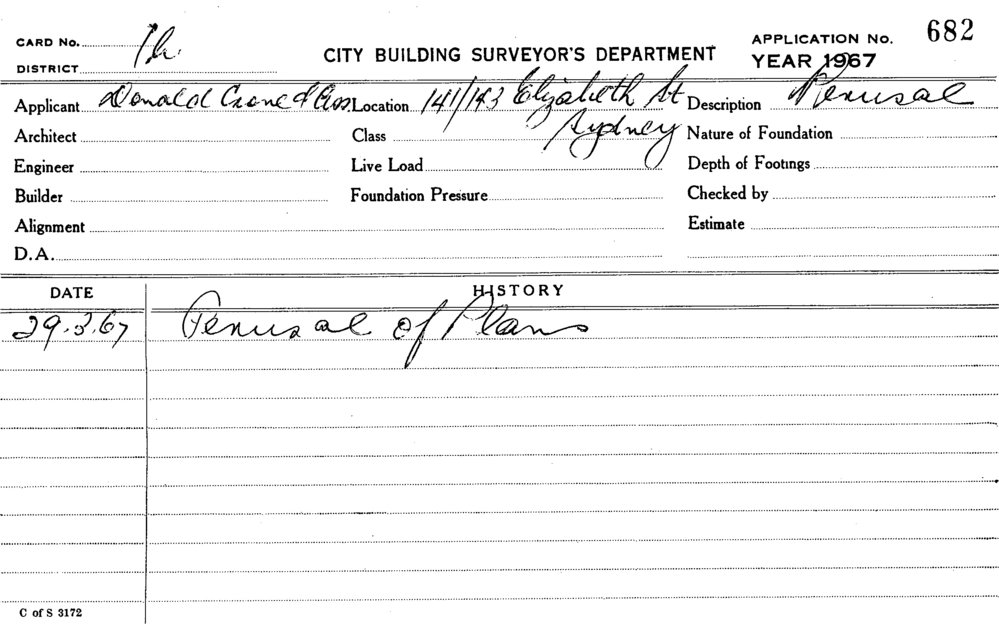 CARD No.
DISTRICT
CITY BUILDING SURVEYOR'S DEPARTMENT
APPLICATION No. 682
YEAR 1967
Applicant Donald Crone & Ass Location 141/143 Elizabeth St Sydney Description Perusal
Architect Class Nature of Foundation
Engineer Live Load Depth of Footings
Builder Foundation Pressure Checked by
Alignment Estimate
D.A.
DATE HISTORY
29.3.67 Perusal of Plans
C of S 3172